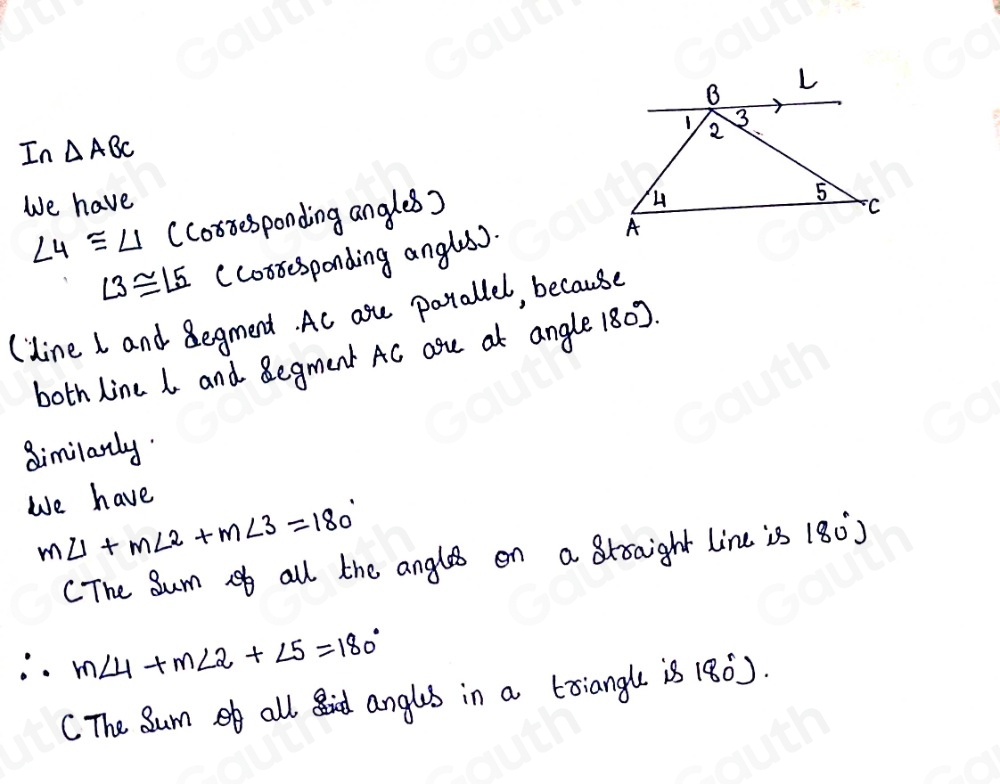 B
L
1
2
3
4
5
A
C
In △ABC
We have
∠4 ≅ ∠1 (Corresponding angles)
∠3 ≅ ∠5 (Corresponding angles).
(line l and Segment AC are parallel, because
both line l and Segment AC are at angle 180°).
Similarly.
We have
m∠1 + m∠2 + m∠3 = 180°
(The Sum of all the angles on a Straight line is 180°)
∴ m∠4 + m∠2 + ∠5 = 180°
(The Sum of all angles in a triangle is 180°).
Gauth